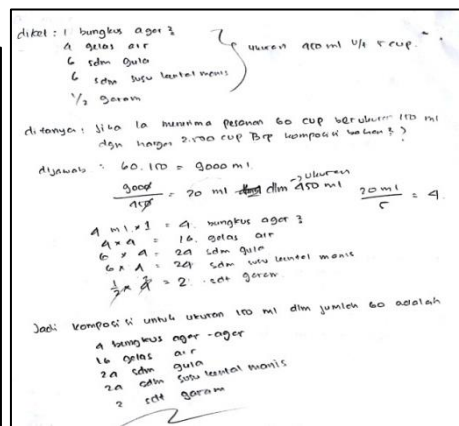 diket : 1 bungkus ager²
4 gelas air
6 sdm gula
6 sdm susu kental manis
1/2 garam
ukuran 450 ml u/ 5 cup.
ditanya : Jika Ia menerima pesanan 60 cup berukuran 150 ml
dgn harga 2.500 cup Brp komposisi bahan²?
dijawab : 60.150 = 9000 ml.
9000/450 = 20 ml dlm 450 ml → ukuran 20 ml/5 = 4.
4 ml × 1 = 4. bungkus ager²
4 × 4 = 16. gelas air
6 × 4 = 24 sdm gula
6 × 4 = 24 sdm susu kental manis
1/2 × 4 = 2. sdt garam.
Jadi komposisi untuk ukuran 150 ml dlm jumlah 60 adalah
4 bungkus ager-ager
16 gelas air
24 sdm gula
24 sdm susu kental manis
2 sdt garam